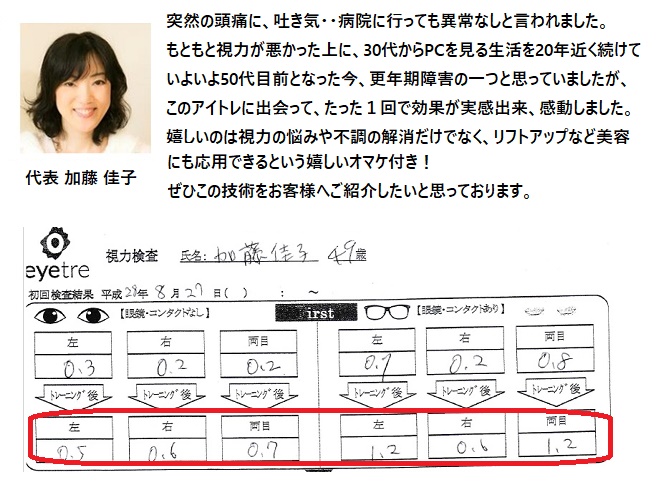 突然の頭痛に、吐き気・・病院に行っても異常なしと言われました。
もともと視力が悪かった上に、30代からPCを見る生活を20年近く続けて
いよいよ50代目前となった今、更年期障害の一つと思っていましたが、
このアイトレに出会って、たった１回で効果が実感出来、感動しました。
嬉しいのは視力の悩みや不調の解消だけでなく、リフトアップなど美容
にも応用できるという嬉しいオマケ付き！
ぜひこの技術をお客様へご紹介したいと思っております。
代表 加藤 佳子
eyetre
視力検査 氏名: 加藤佳子 49歳
初回検査結果 平成28年 8月27日( ) : ～
【眼鏡・コンタクトなし】 irst 【眼鏡・コンタクトあり】
左 右 両目 左 右 両目
0.3 0.2 0.2 0.7 0.2 0.8
トレーニング後 トレーニング後 トレーニング後 トレーニング後 トレーニング後 トレーニング後
左 右 両目 左 右 両目
0.5 0.6 0.7 1.2 0.6 1.2